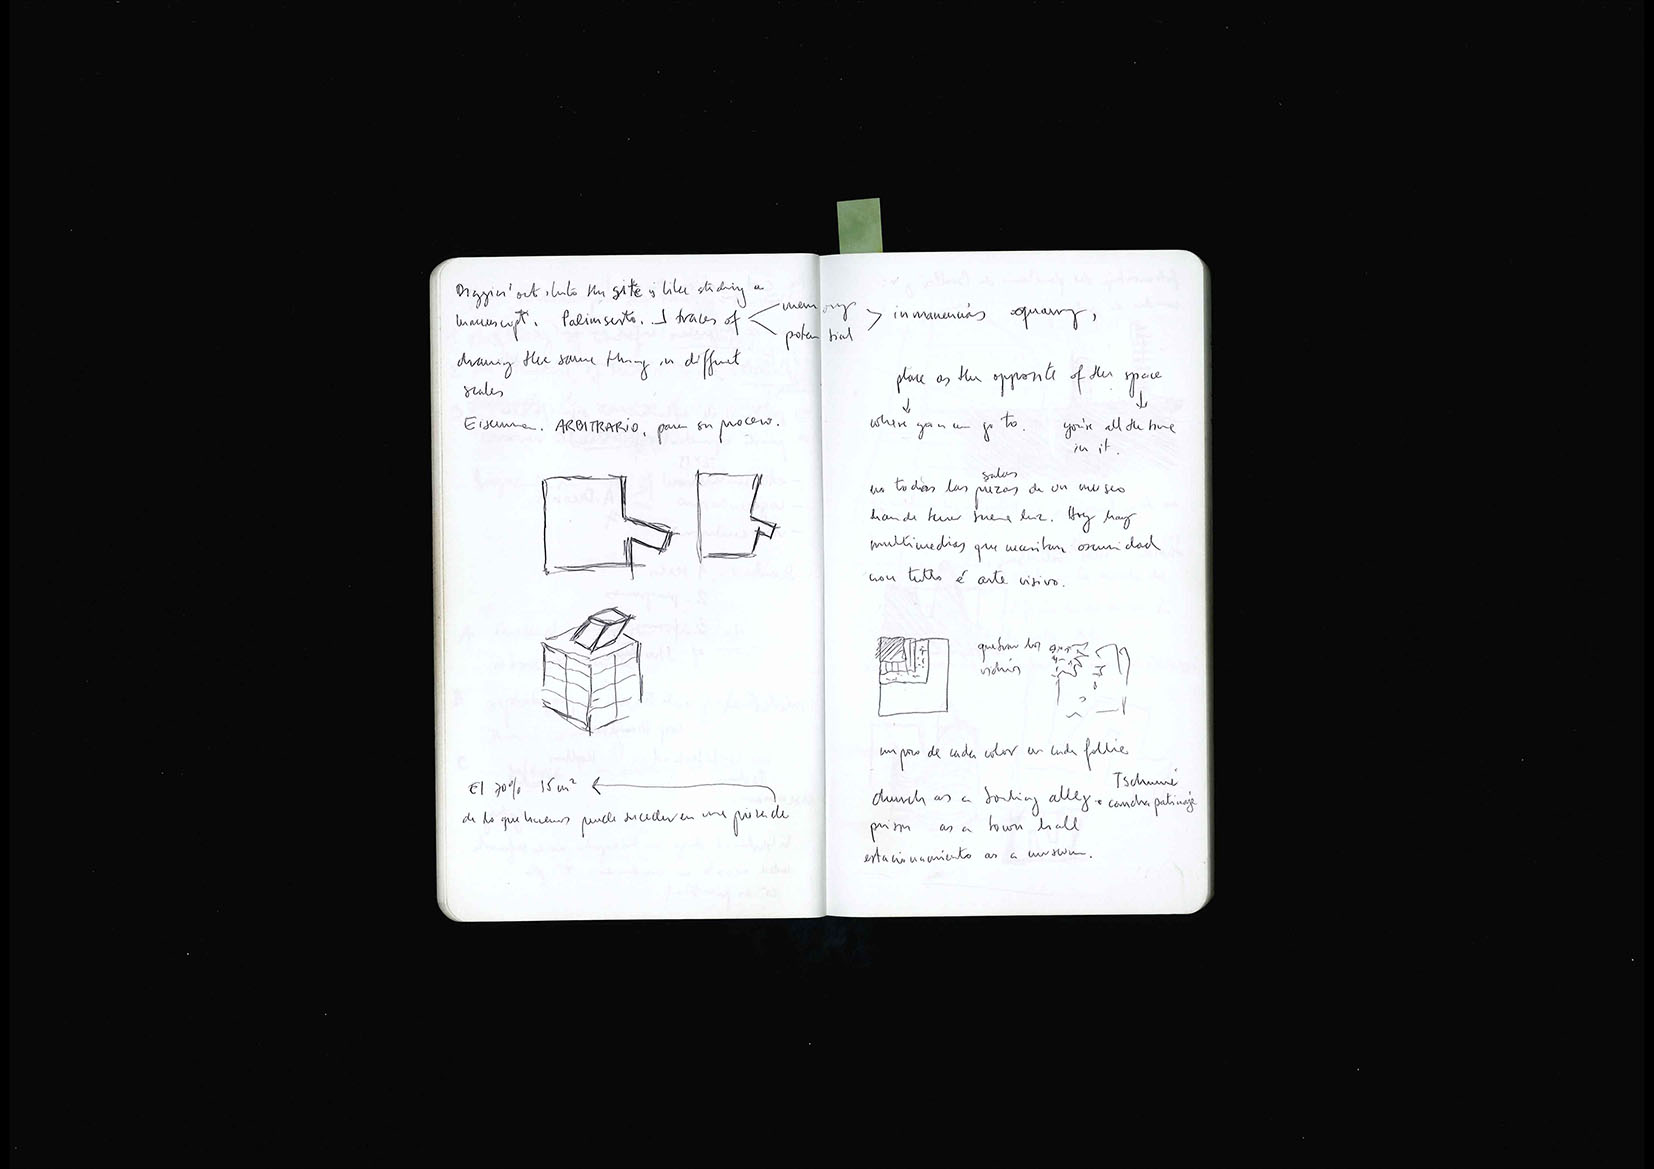 Diggin' out into the site is like studying a
manuscript. Palimsesto. traces of
memory
potential
drawing the same thing in diffrent
scales
Eisenman. ARBITRARIO, para su proceso.
El 70% 15 m²
de lo que hacemos puede suceder en una pieza de
inmanencias
place as the opposite of the space
where you can go to. you're all the time
in it.
salas
no todas las piezas de un museo
han de tener buena luz. Hoy hay
multimedias que necesitan oscuridad
non tutto é arte visivo.
quebrar los
vidrios
un poco de cada color en cada follie
Tschumi
church as a bowling alley. cancha patinaje
prison as a town hall
estacionamiento as a museum.